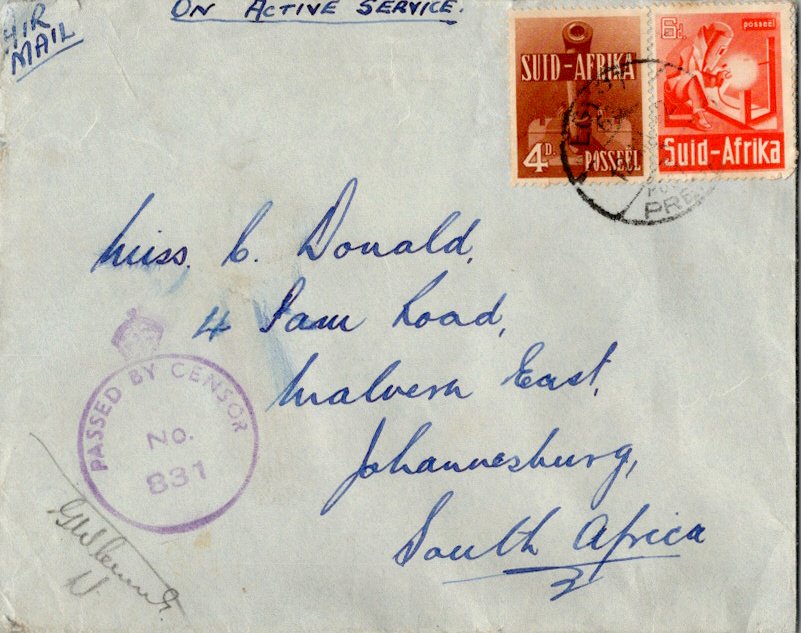 AIR
MAIL
ON ACTIVE SERVICE.
SUID-AFRIKA
4D. POSSEËL
6d. posseël
Suid-Afrika
PRE
Miss. C. Donald,
4 Sam Road,
Malvern East,
Johannesburg,
South Africa
PASSED BY CENSOR
No.
831